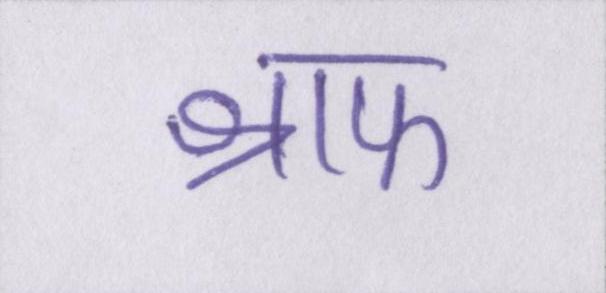 श्राफ